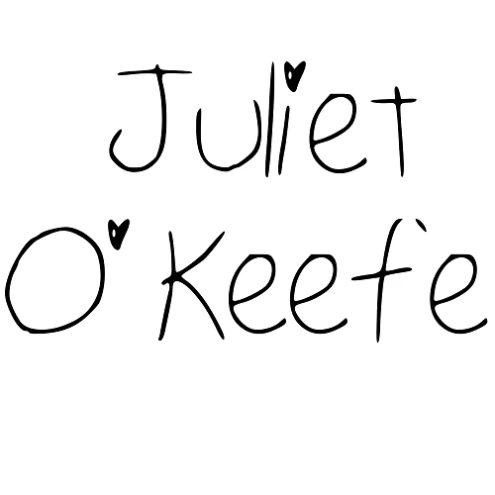 Juliet
O'Keefe